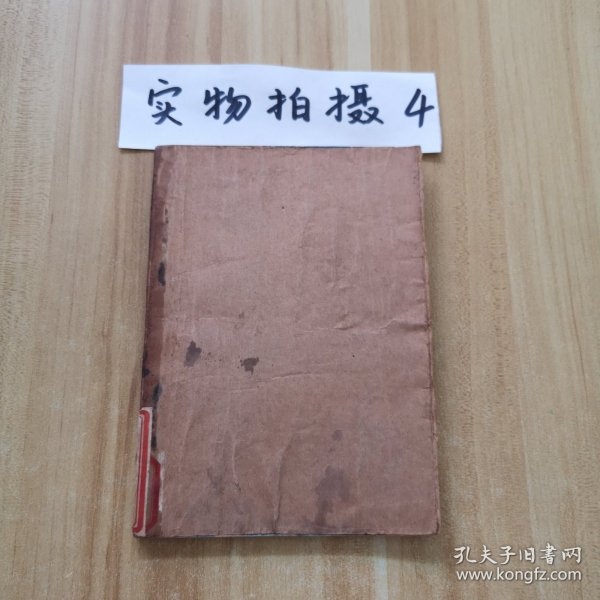 实物拍摄4
孔夫子旧书网
www.kongfz.com